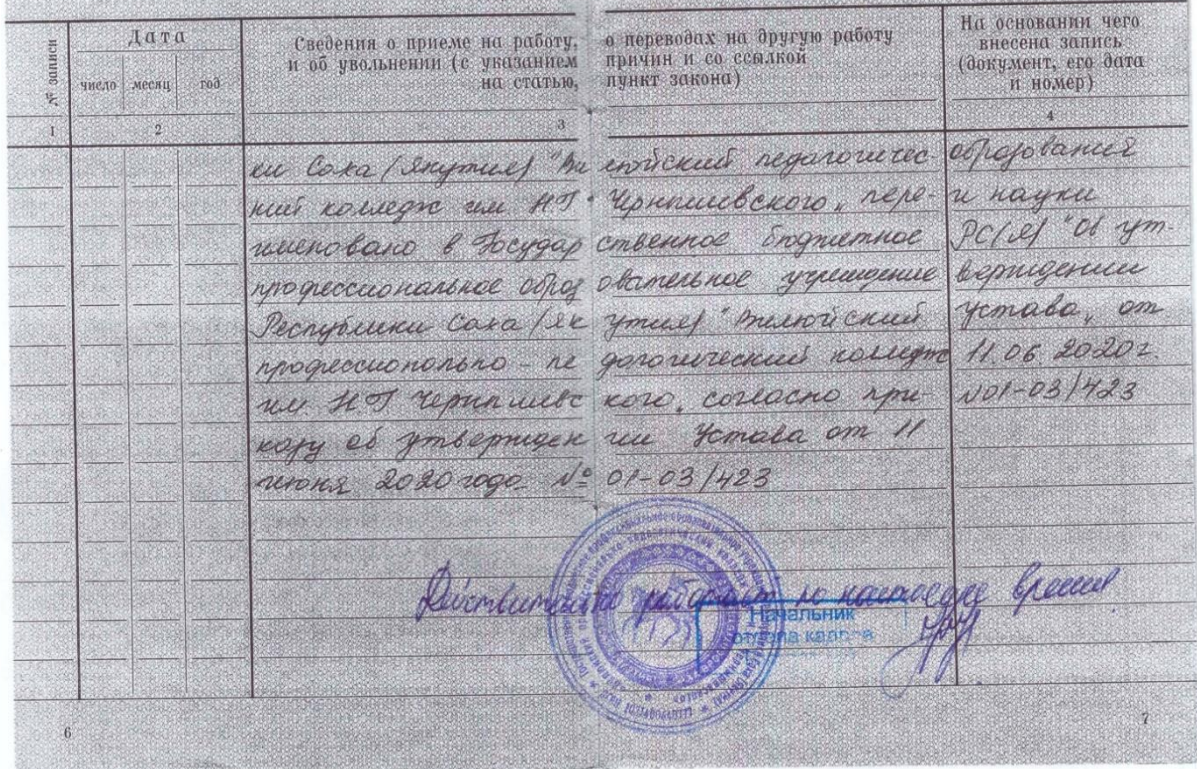 № записи
Дата
Сведения о приеме на работу, о переводах на другую работу
и об увольнении (с указанием причин и со ссылкой
на статью, пункт закона)
На основании чего
внесена запись
(документ, его дата
и номер)
число месяц год
1 2 3 4
ки Саха (Якутия) "Вилюйский педагогичес-
кий колледж им Н.Г. Чернышевского„ пере-
именовано в Государственное бюджетное
профессиональное образовательное учреждение
Республики Саха (Якутия) "Вилюйский
профессионально-педагогический колледж
им Н Г Чернышевского„ согласно при-
казу об утверждении Устава от 11
июня 2020 года № 01-03/423
образования
и науки
РС(Я) "Об ут-
верждении
Устава„ от
11.06.2020г.
№01-03/423
Действительно работает по настоящее время
Начальник
отдела кадров
6
7